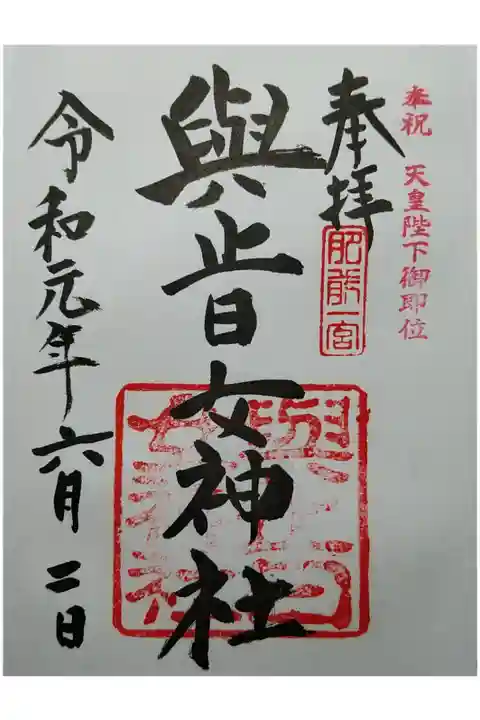 奉祝 天皇陛下御即位
奉拝
肥前一宮
與止日女神社
令和元年六月二日